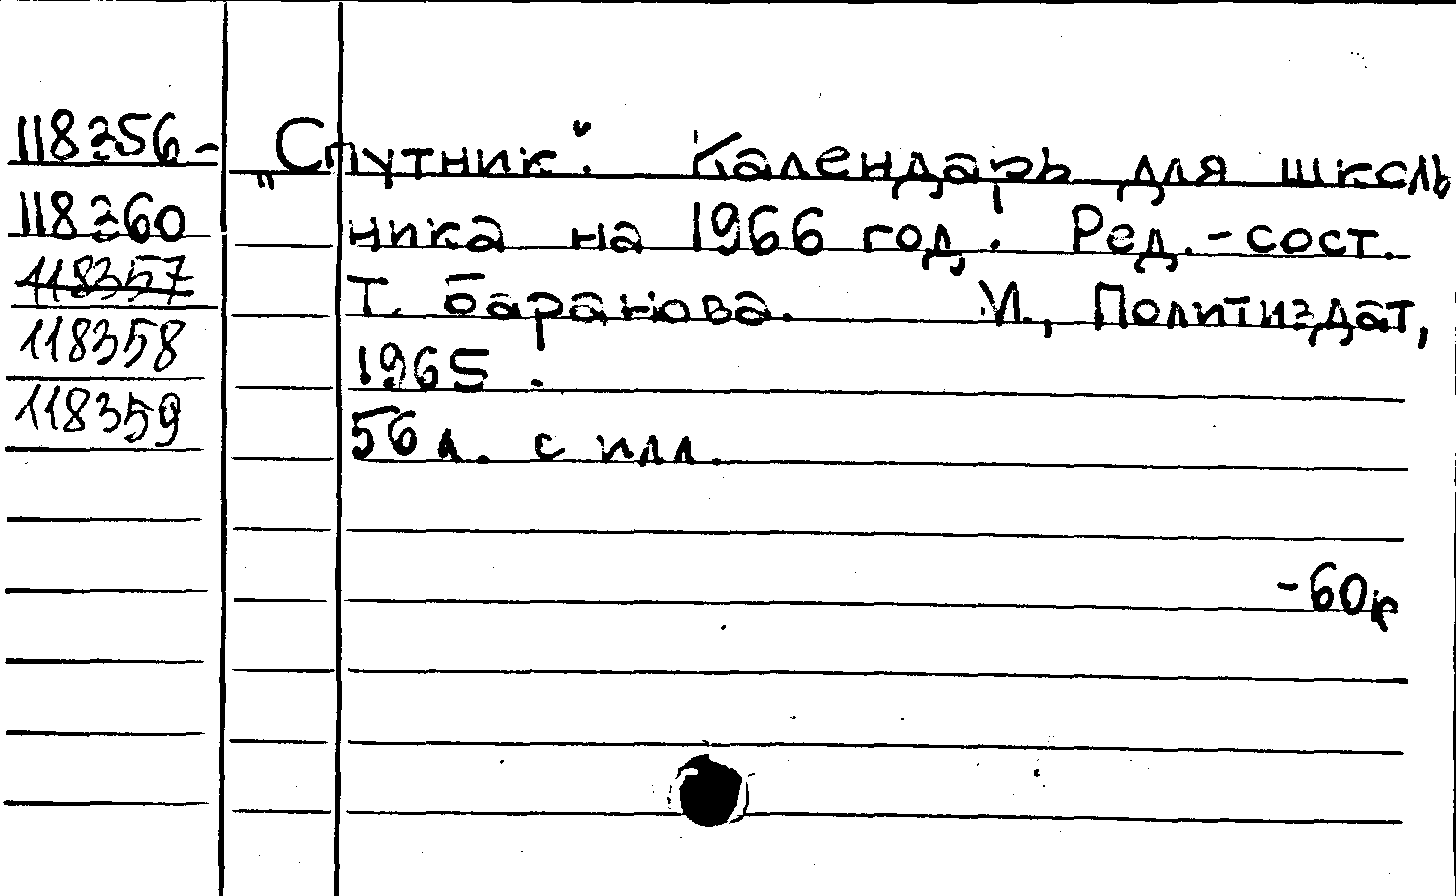 118356- „Спутник". Календарь для школь
118360 ника на 1966 год. Ред.-сост.
118357 Т. Баранова. М., Политиздат,
118358 1965.
118359 56 л. с илл.
-60к